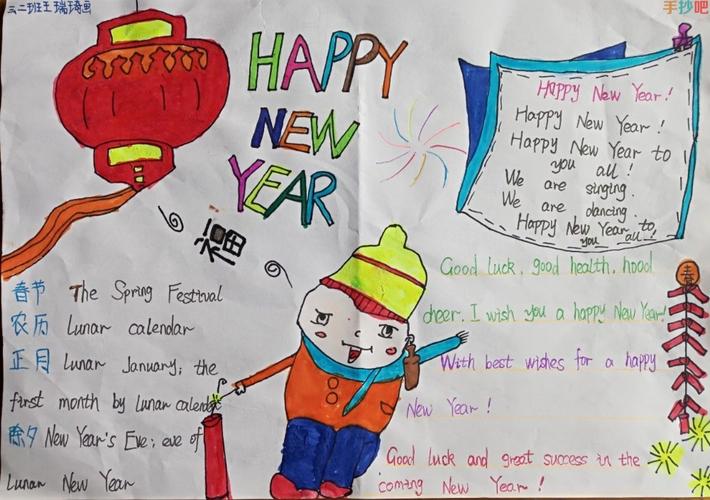 三二班王瑞琦画
手抄吧
HAPPY
NEW
YEAR
Happy New Year!
Happy New Year!
Happy New Year to
you all!
We are singing.
We are dancing.
Happy New Year to
you all.
福
春节 The Spring Festival
农历 Lunar calendar
正月 Lunar January; the
first month by lunar calendar
除夕 New Year's Eve; eve of
Lunar New Year
Good luck, good health, hood
cheer. I wish you a happy New Year!
With best wishes for a happy
New Year!
Good luck and great success in the
coming New Year!
春